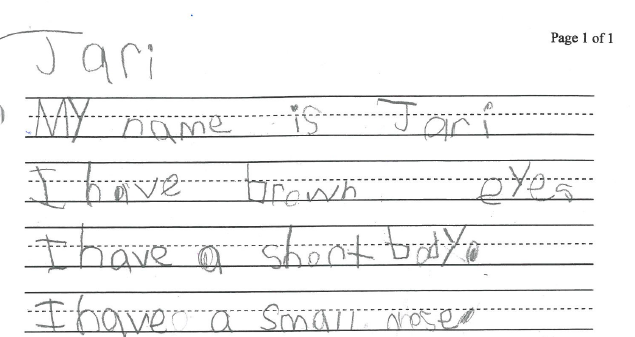 Page 1 of 1
Jari
MY name is Jari
I have brown eyes
I have a short body.
I have a small nose.